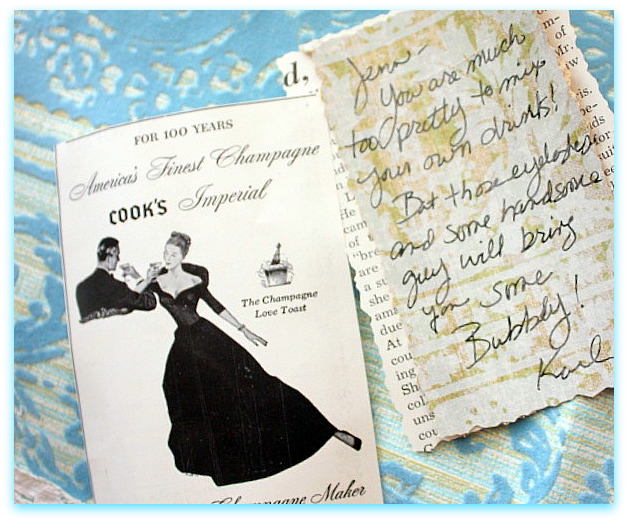 FOR 100 YEARS
America's Finest Champagne
COOK'S Imperial
The Champagne
Love Toast
Champagne Maker
d,
Jenn -
You are much
too pretty to mix
your own drinks!
But those eyelashes
and some handsome
guy will bring
you some
Bubbly!
of
Mr.
He
cam
of
"bre
are
a su
she
ama
due
At
cou
ing
Sh
col
uns
cou